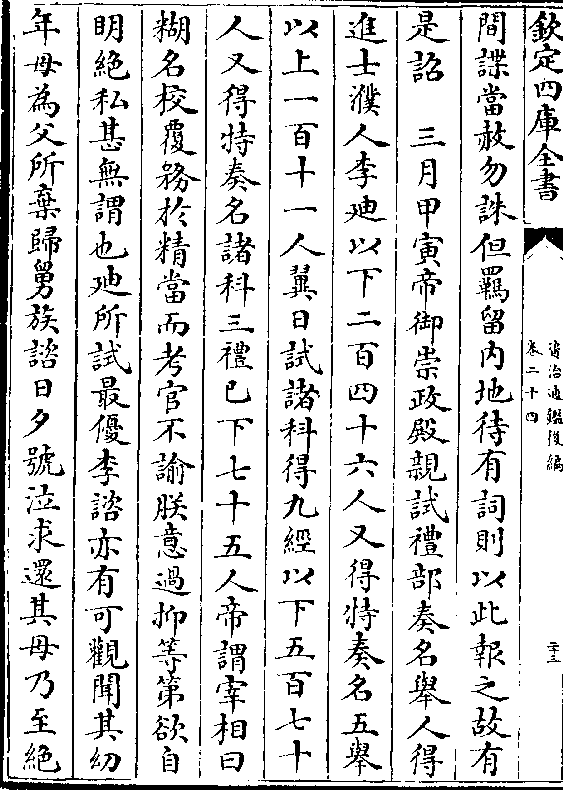 欽定四庫全書
資治通鑑後編
卷二十四
二十三
間諜當赦勿誅但羈留内地待有詞則以此報之故有
是詔　三月甲寅帝御崇政殿親試禮部奏名舉人得
進士濮人李廸以下二百四十六人又得特奏名五舉
以上一百十一人翼日試諸科得九經以下五百七十
人又得特奏名諸科三禮已下七十五人帝謂宰相曰
糊名校覆務於精當而考官不諭朕意過抑等第欲自
明絶私甚無謂也廸所試最優李諮亦有可觀聞其幼
年母為父所棄歸舅族諮日夕號泣求還其母乃至絶